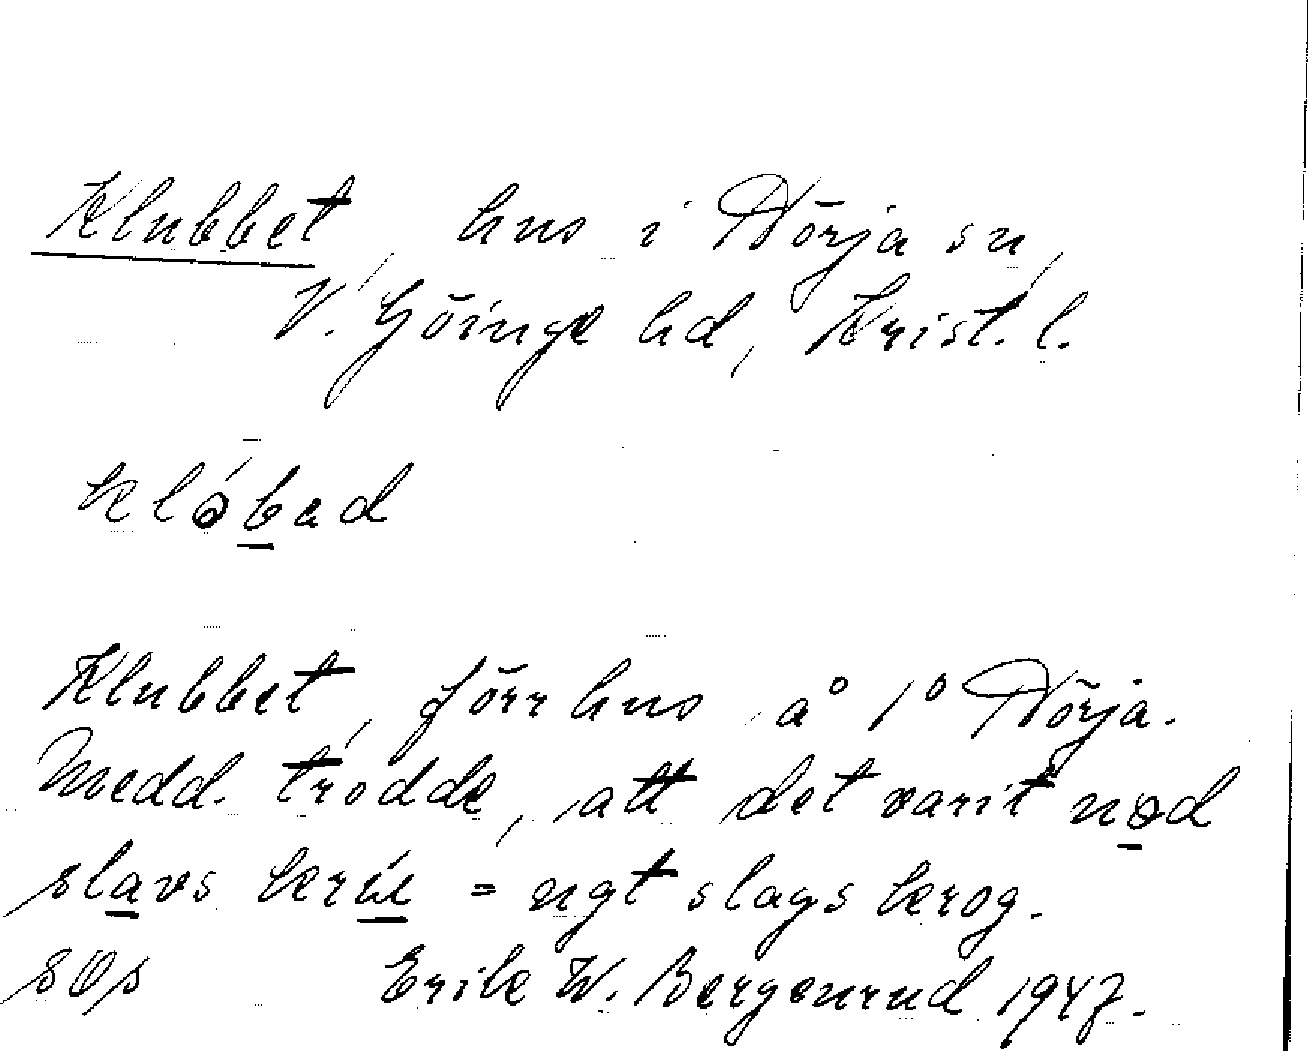 Klubbet, hus i Nörja sn,
V. Göinge hd, Krist. l.
klóbad
Klubbet, förr hus å 1º Nörja.
Medd. trodde, att det varit nod
slavs krúk = ngt slags krog.
Erik W. Bergenrud 1947.